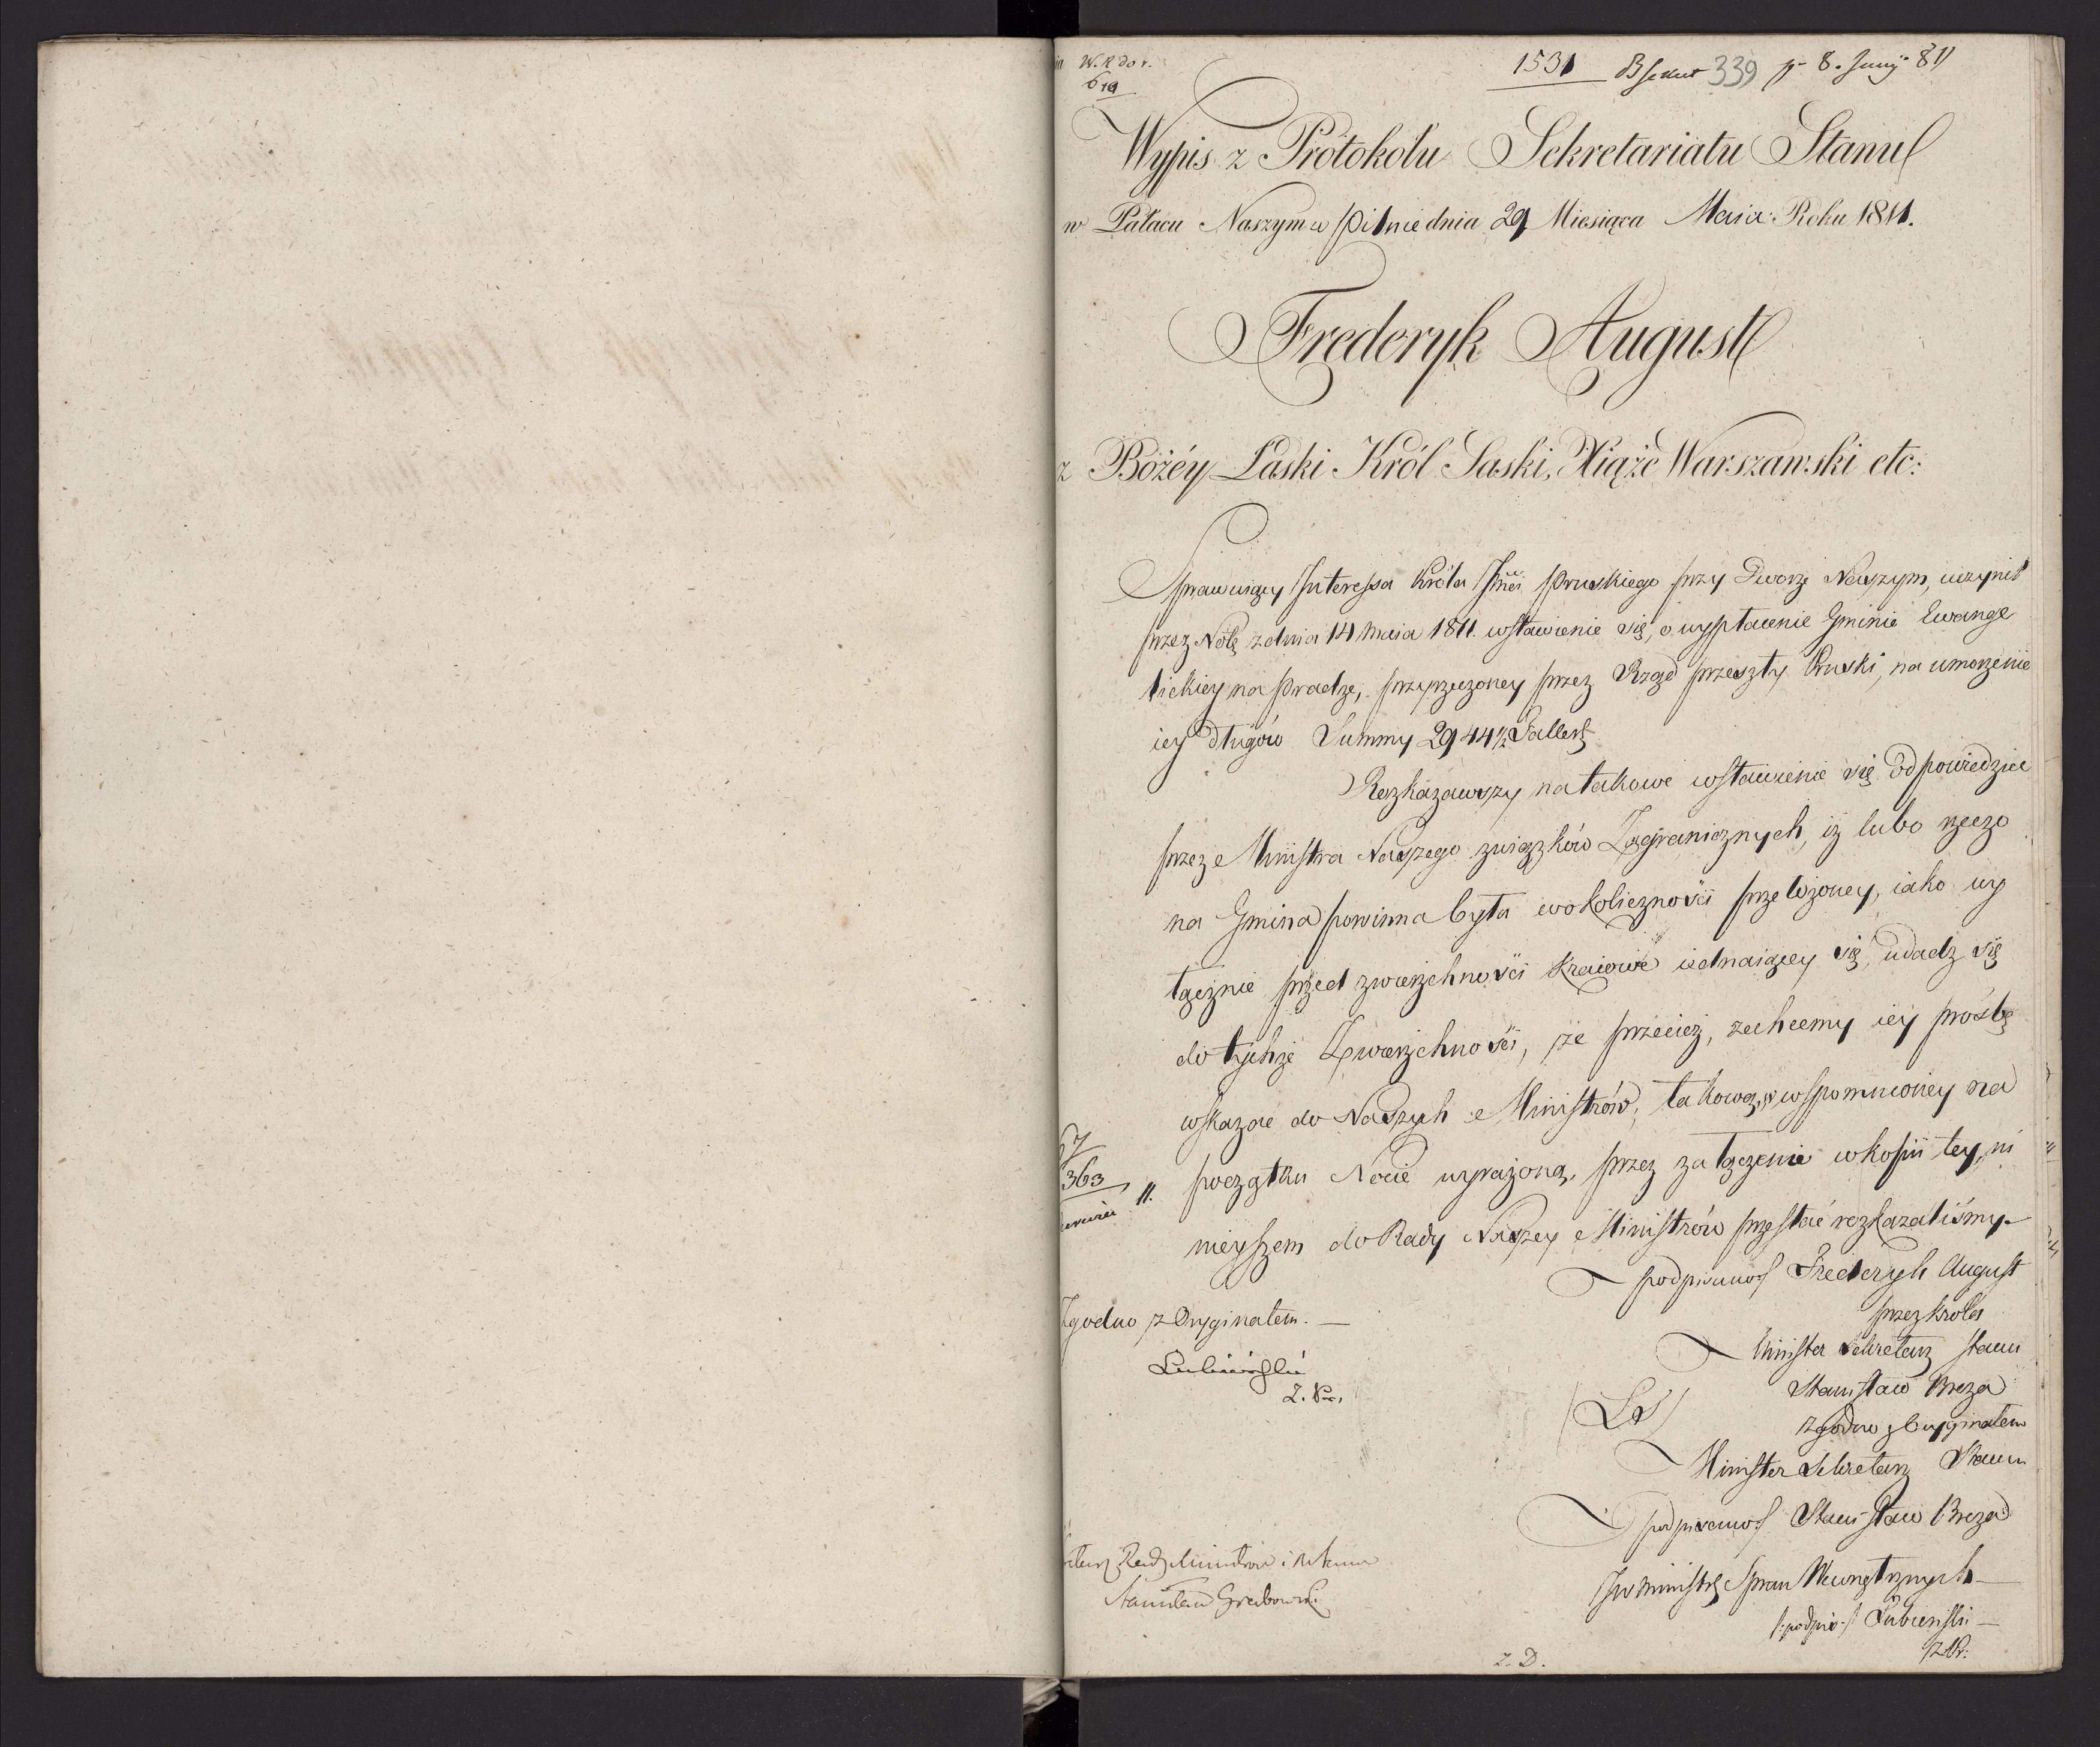 W. R do r.
619
1531 339 p. 8. Juny 811
Wypis z Protokołu Sekretariatu Stanu
w Pałacu Naszym w Pilnie dnia 29 Miesiąca Maia Roku 1811.
Frederyk August
z Bożéy Łaski Król Saski, Xiążę Warszawski etc:
Sprawuiący Interessa Króla Jmci Pruskiego przy Dworze Naszym, uczynił
przez Notę z dnia 14 Maia 1811. wstawienie się, o wypłacenie Gminie Ewange
lickiey na Pradze, przyrzeczoney przez Rząd przeszły Pruski, na umorzenie
iey długów Summy 2944½ Taller.
Rozkazawszy na takowe wstawienie się odpowiedzieć
przez Ministra Naszego związków Zagranicznych, iż lubo rzeczo
na Gmina powinna była w okoliczności przełożoney, iako wy
łącznie przed zwierzchności Kraiowe iednaiącey się, udadz się
do tychże Zwierzchności, że przecież, zechcemy iey prośbę
wskazać do Naszych Ministrów, takową w wspomnioney na
początku Nocie wyrażoną, przez załączenie w kopii tey, ni
nieyszem do Rady Naszey Ministrów przesłać rozkazaliśmy.
67
363
11.
podpisano Frederyk August
przez Króla
Minister Sekretarz Stanu
Stanisław Breza
(LS)
Zgodno z Oryginałem
Minister Sekretarz Stanu
podpisano Stanisław Breza
Zgodno z Oryginałem.
Łubieński
Z. Pr.
Rady Ministrów i Stanu
Stanisław Grabowski
JW Ministr Spraw Wewnętrznych
/:podpis:/ Łubieński
z. Pr.
z. D.